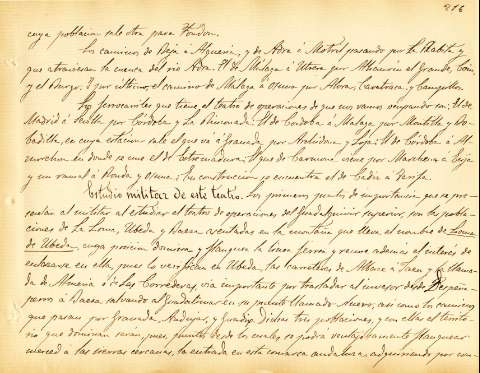 216
cuya poblacion sale otra para Fondon.
Los caminos de Berja á Alqueria, y de Adra á Motril pasando por la Rabita y
que atraviesan la cuenca del rio Adra. El de Málaga á Utrera por Alhaurin el Grande, Coin,
y el Burgo. Y por ultimo, el camino de Málaga á Osuna por Alora, Carratraca, y Campillos.
Los ferrocarriles que tiene el teatro de operaciones de que nos vamos ocupando son: El de
Madrid á Sevilla por Córdoba y La Rinconada. El de Córdoba á Malaga por Montilla y Bo-
badilla, en cuya estacion sale el que vá á Granada por Archidona y Loja: El de Córdoba á Al-
morchon en donde se une el de Extremadura: El que de Carmona viene por Marchena á Ecija
y un ramal á Ronda y Osuna: En construccion se encuentra el de Cadiz á Tarifa.
Estudio militar de este teatro. Los primeros puntos de importancia que se pre-
sentan al militar al estudiar el teatro de operaciones del Guadalquivir superior, son las pobla-
ciones de La Loma, Ubeda y Baeza asentadas en la montaña que lleva el nombre de Loma
de Ubeda, cuya posicion domina y flanquea la linea ferrea y reune además el interes de
enlazarse en ella, pues se verifica en Ubeda, las carreteras de Albacete á Jaen y la llama-
da de Almeria á las Correderas, via importante por trasladar al invasor desde Despeña-
perros á Baeza, salvando el Guadalimar en su puente llamado Nuevo, asi como los caminos
que pasan por Granada, Andujar, y Guadix. Dichas tres poblaciones, y con ellas el territo-
rio que dominan serán, pues, puntos desde los cuales se podrá ventajosamente flanquear
merced á las sierras cercanas, la entrada en esta comarca andaluza, adquiriendo por con-